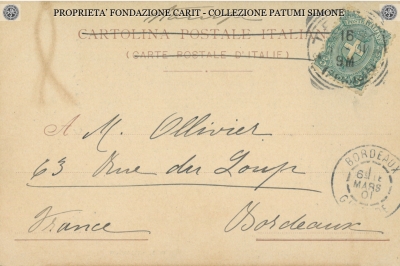 PROPRIETA' FONDAZIONE CARIT - COLLEZIONE PATUMI SIMONE
CARTOLINA POSTALE ITALIANA
(CARTE POSTALE D'ITALIE)
16
9M
A M. Ollivier
63 Rue du Loup
France Bordeaux
BORDEAUX
MARS
01